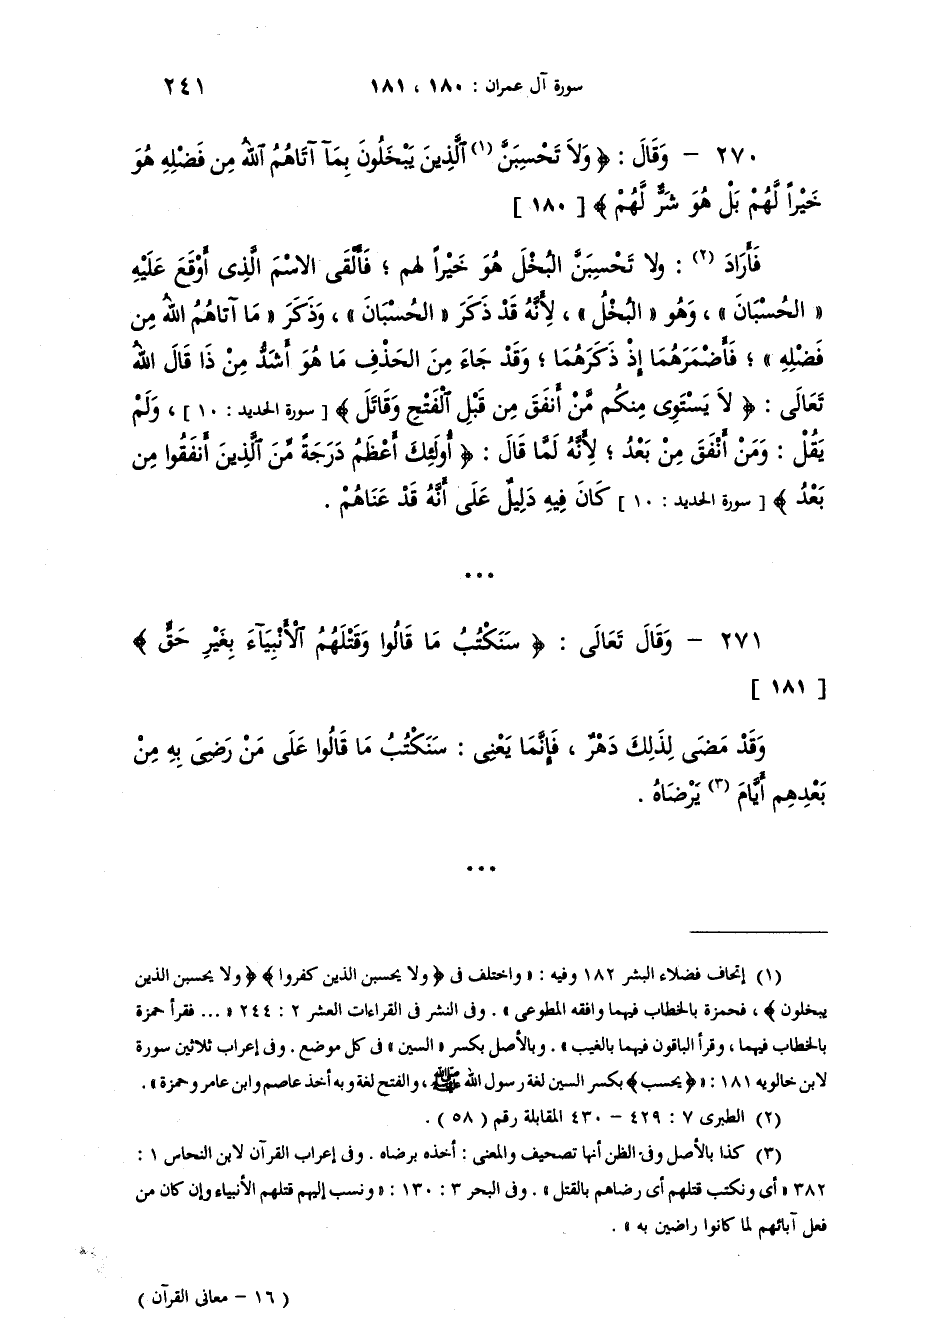 سورة آل عمران : ١٨٠ ، ١٨١ ٢٤١
٢٧٠ – وَقَالَ : ﴿ وَلاَ تَحْسِبَنَّ (١) ٱلَّذِينَ يَبْخَلُونَ بِمَآ آتَاهُمُ ٱللهُ مِن فَضْلِهِ هُوَ
خَيْراً لَّهُمْ بَلْ هُوَ شَرٌّ لَّهُمْ ﴾ [ ١٨٠ ]
فَأَرَادَ (٢) : ولا تَحْسِبَنَّ البُخْلَ هُوَ خَيْراً لهم ؛ فَأَلْقَى الاسْمَ الَّذِى أَوْقَعَ عَلَيْهِ
« الحُسْبَانَ » ، وَهُو « البُخْلُ » ، لِأَنَّهُ قَدْ ذَكَرَ « الحُسْبَانَ » ، وَذَكَرَ « مَا آتاهُمُ اللهُ مِن
فَضْلِهِ » ؛ فَأَضْمَرَهُمَا إِذْ ذَكَرَهُمَا ؛ وَقَدْ جَاءَ مِنَ الحَذْفِ مَا هُوَ أَشَدُّ مِنْ ذَا قَالَ اللهُ
تَعَالَى : ﴿ لاَ يَسْتَوِى مِنكُم مَّنْ أَنفَقَ مِن قَبْلِ ٱلْفَتْحِ وَقَاتَلَ ﴾ [ سورة الحديد : ١٠ ] ، وَلَمْ
يَقُلْ : وَمَنْ أَنْفَقَ مِنْ بَعْدُ ؛ لِأَنَّهُ لَمَّا قَالَ : ﴿ أُولَئِكَ أَعْظَمُ دَرَجَةً مِّنَ ٱلَّذِينَ أَنفَقُوا مِن
بَعْدُ ﴾ [ سورة الحديد : ١٠ ] كَانَ فِيهِ دَلِيلٌ عَلَى أَنَّهُ قَدْ عَنَاهُمْ .
• • •
٢٧١ – وَقَالَ تَعَالَى : ﴿ سَنَكْتُبُ مَا قَالُوا وَقَتْلَهُمُ ٱلْأَنْبِيَآءَ بِغَيْرِ حَقٍّ ﴾
[ ١٨١ ]
وَقَدْ مَضَى لِذَلِكَ دَهْرٌ ، فَإِنَّمَا يَعْنِى : سَنَكْتُبُ مَا قَالُوا عَلَى مَنْ رَضِىَ بِهِ مِنْ
بَعْدِهِم أَيَّامَ (٣) يَرْضَاهُ .
• • •
(١) إتحاف فضلاء البشر ١٨٢ وفيه : « واختلف فى ﴿ ولا يحسبن الذين كفروا ﴾ ﴿ ولا يحسبن الذين
يبخلون ﴾ ، فحمزة بالخطاب فيهما وافقه المطوعى » . وفى النشر فى القراءات العشر ٢ : ٢٤٤ « ... فقرأ حمزة
بالخطاب فيهما ، وقرأ الباقون فيهما بالغيب » . وبالأصل بكسر « السين » فى كل موضع . وفى إعراب ثلاثين سورة
لابن خالويه ١٨١ : « ﴿ يحسب ﴾ بكسر السين لغة رسول الله ﷺ ، والفتح لغة وبه أخذ عاصم وابن عامر وحمزة » .
(٢) الطبرى ٧ : ٤٢٩ – ٤٣٠ المقابلة رقم ( ٥٨ ) .
(٣) كذا بالأصل وفى الظن أنها تصحيف والمعنى : أخذه برضاه . وفى إعراب القرآن لابن النحاس ١ :
٣٨٢ « أى ونكتب قتلهم أى رضاهم بالقتل » . وفى البحر ٣ : ١٣٠ : « ونسب إليهم قتلهم الأنبياء وإن كان من
فعل آبائهم لما كانوا راضين به » .
( ١٦ – معانى القرآن )